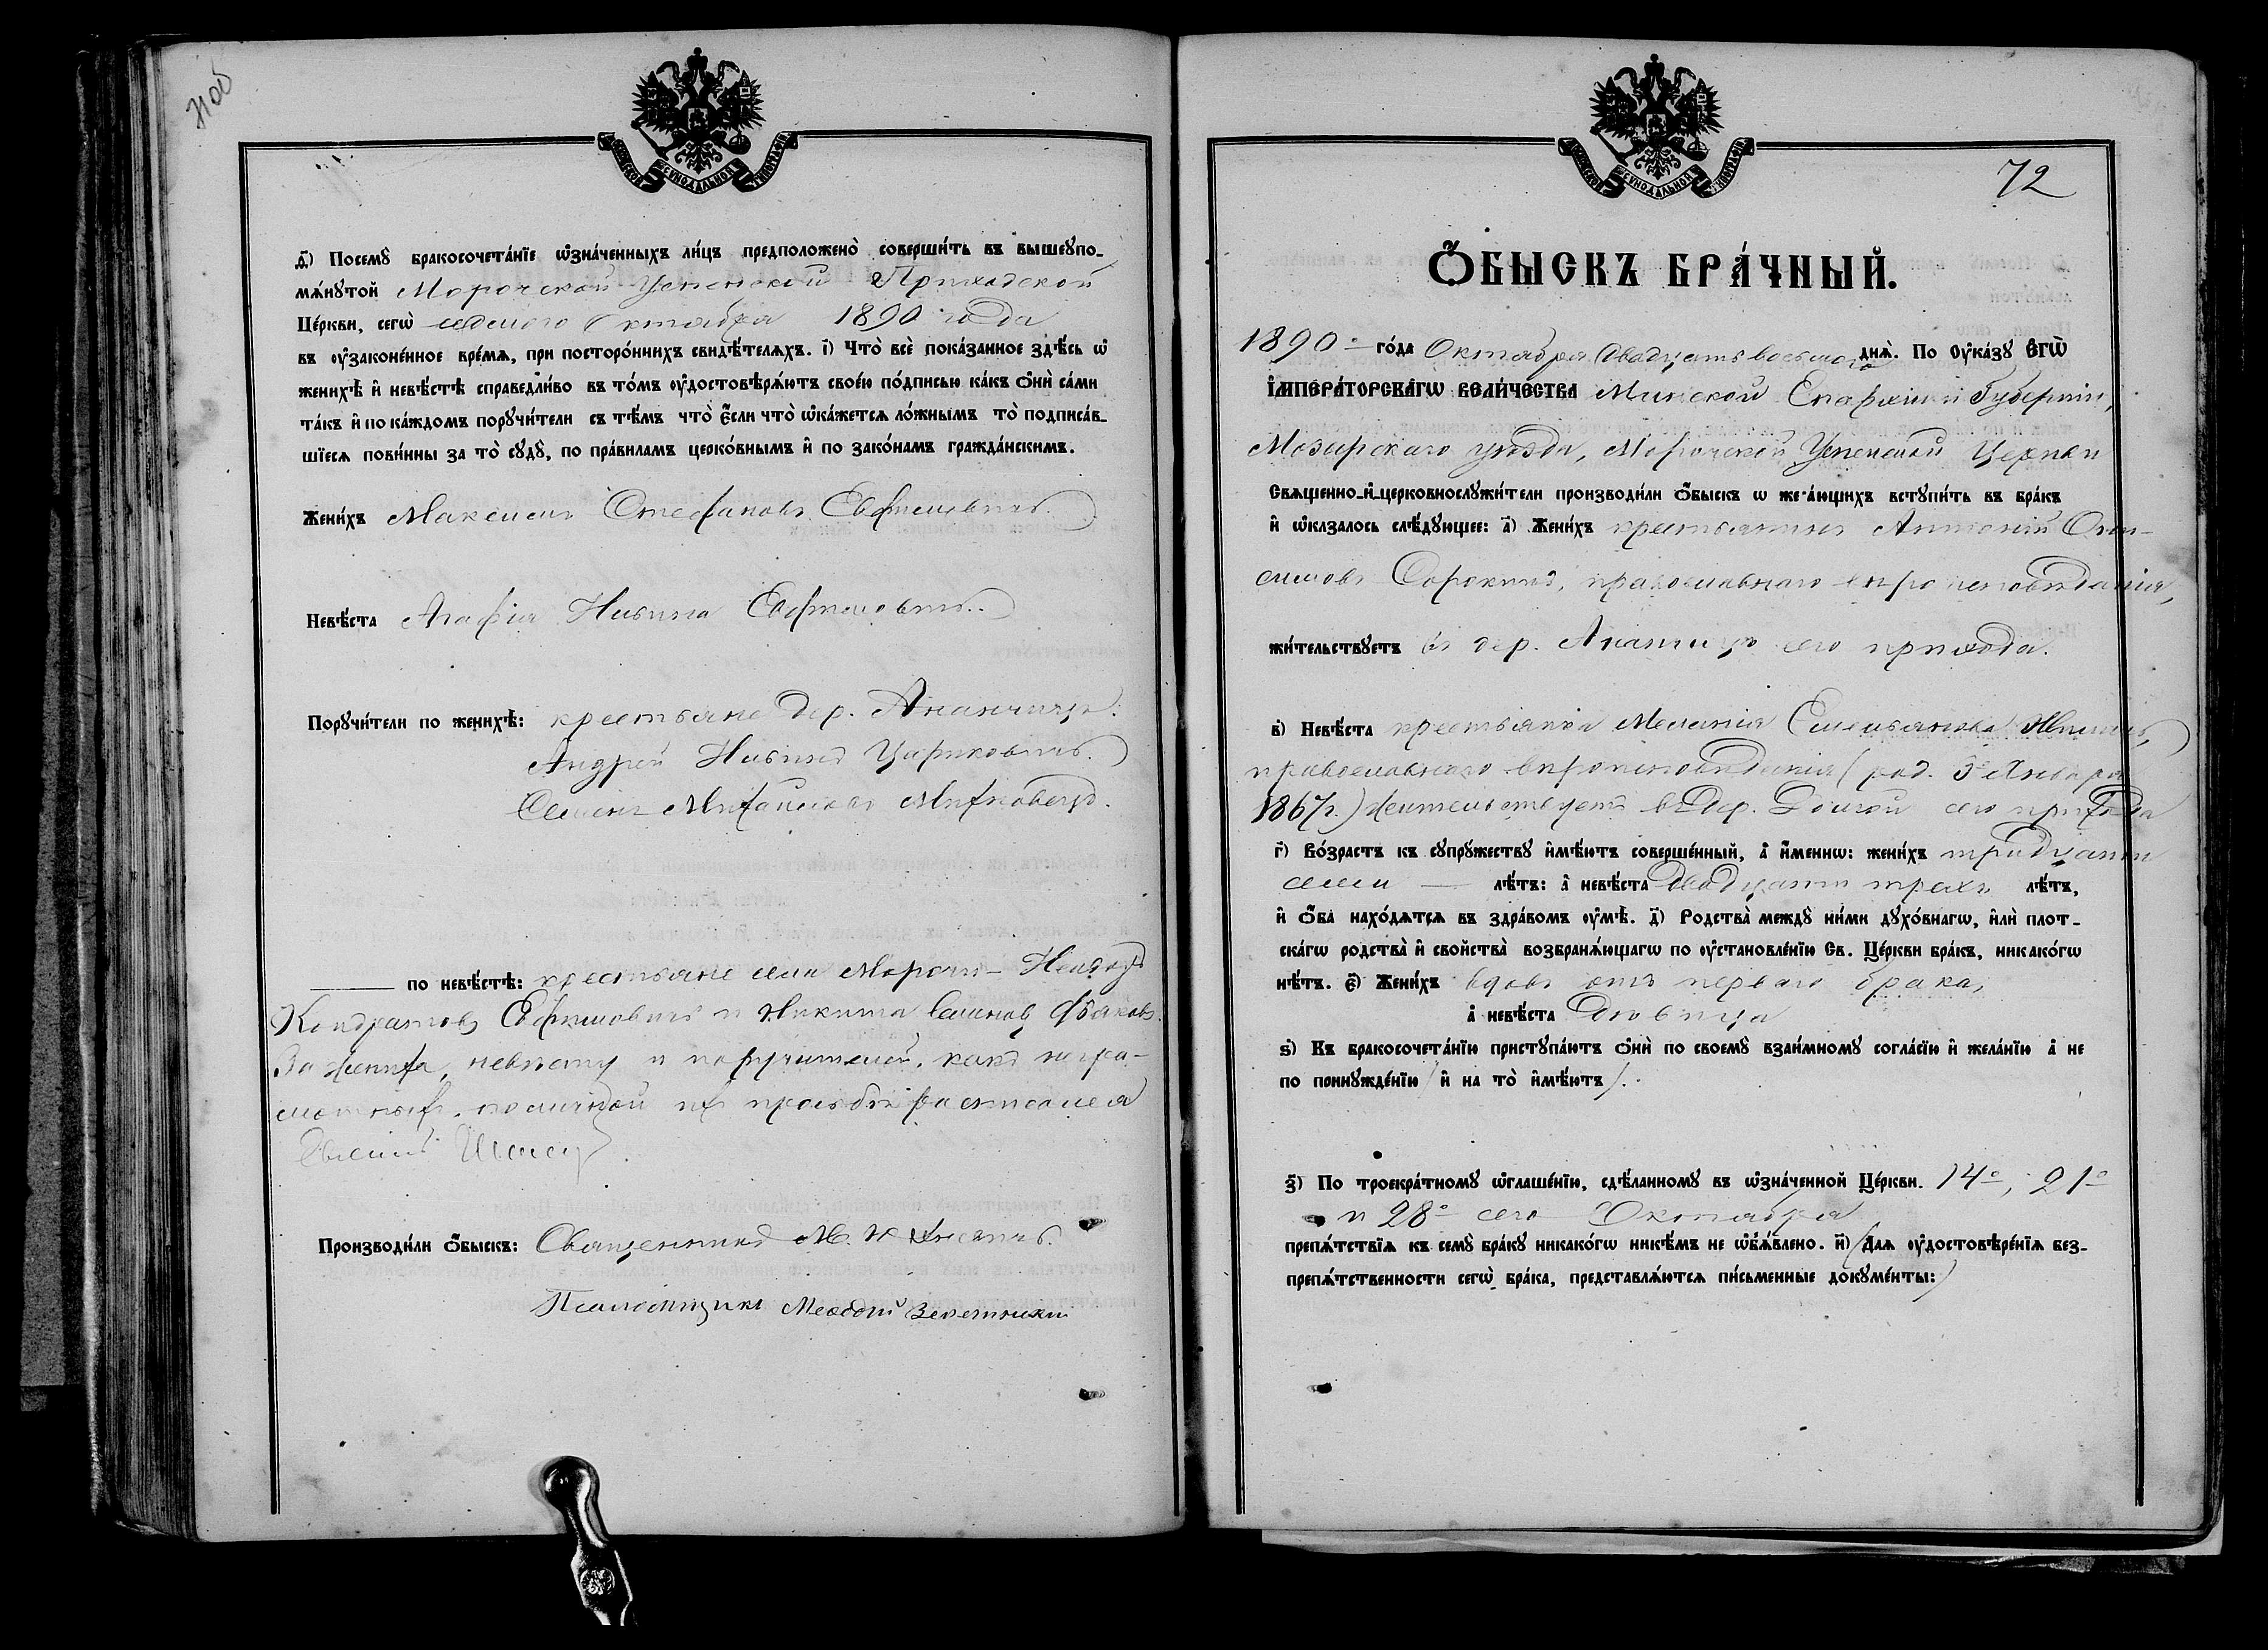 71об
МОСКОВСКОЙ СѴНОДАЛЬНОЙ ТИПОГРАФІИ
д҃і) Посемꙋ̀ бракосочета́нїе ѡ҆зна́ченныхъ ли́цъ предположено̀ соверши́ть въ вышеꙋпо-
мѧ́нꙋтой Морочской Успенской Приходской
Це́ркви, сегѡ̀ седьмого Октября 1890 года
въ ᲂу҆законе́нное вре́мѧ, при посторо́ннихъ свидѣ́телѧхъ. і҃) Что̀ всѐ пока́занное здѣ́сь ѡ҆
женихѣ̀ и҆ невѣ́стѣ справедли́во въ то́мъ ᲂу҆достовѣрѧ́ютъ свое́ю по́дписью ка́къ ѻ҆нѝ са́ми
та́къ и҆ по ка́ждомъ порꙋчи́тели съ тѣ́мъ что̀ є҆́сли что̀ ѡ҆ка́жетсѧ ло́жнымъ то̀ подписа́в-
шїесѧ пови́нны за то̀ сꙋдꙋ̀, по пра́виламъ церко́внымъ и҆ по зако́намъ гражда́нскимъ.
Жени́хъ Максимъ Стефановъ
Невѣ́ста Агафія
Порꙋчи́тели по женихѣ̀: крестьяне дер. Ананчицъ:
Андрей Цариковичъ.
Семенъ Михайловъ Митковецъ.
по невѣ́стѣ: крестьяне села Морочи –
Кондратовъ Ефимовичъ и Никита Семеновъ
За жениха, невѣсту и поручителей, какъ негра-
мотныхъ, по личной ихъ просьбѣ росписался
Производи́ли ѻ҆́быскъ: Священникъ
Псаломщикъ Меѳодій
МОСКОВСКОЙ СѴНОДАЛЬНОЙ ТИПОГРАФІИ
72
Ѻ҆́БЫСКЪ БРА́ЧНЫЙ.
1890 го́да Октября двадцать восьмого днѧ̀. По ᲂу҆ка́зꙋ Є҆ГѠ̀
І҆МПЕРА́ТОРСКАГѠ ВЕЛИ́ЧЕСТВА Минской Епархіи и Губерніи,
Мозырскаго уѣзда, Морочской Успенской Церкви
Свѧщенно-и҆-церковнослꙋжи́тели производи́ли ѻ҆́быскъ ѡ же·а́ющихъ встꙋпи́ть въ бра́къ
и҆ ѡ҆казалось слѣ́дꙋющее: а҃) Жени́хъ крестьянинъ Антоній Они-
симовъ Сорокинъ, православнаго вѣроисповѣданія,
жи́тельствꙋетъ въ дер. Ананчицъ сего прихода.
в҃) Невѣ́ста крестьянка Меланія Емельянова
православнаго вѣроисповѣданія (род. 3º Января
1867 г.) жительствуетъ въ дер. Долгой сего прихода
г҃) Во́зрастъ къ сꙋпрꙋ́жествꙋ и҆мѣ́ютъ соверше́нный, а҆ и҆́меннѡ: жени́хъ тридцати
семи — лѣ́тъ: а҆ невѣ́ста двадцати трехъ лѣ́тъ,
и҆ ѻ҆́ба нахо́дѧтсѧ въ здра́вомъ ᲂу҆мѣ̀. д҃) Родства̀ междꙋ̀ ни́ми дꙋхо́внагѡ, и҆лѝ плот-
ска́гѡ родства̀ и҆ свойства̀ возбранѧ́ющагѡ по ᲂу҆становле́нїю Св. Це́ркви бра́къ, никако́гѡ
нѣ́тъ. є҃) Жени́хъ вдовъ отъ перваго брака,
а҆ невѣ́ста дѣвица
ѕ҃) Къ бракосочета́нїю пристꙋпа́ютъ ѻ҆нѝ по своемꙋ̀ взаи́мномꙋ согла́сїю и҆ жела́нїю а҆ не
по принꙋжде́нїю (и҆ на то̀ и҆мѣ́ютъ).
з҃) По троекра́тномꙋ ѡ҆глаше́нїю, сдѣ́ланномꙋ въ ѡ҆зна́ченной Це́ркви. 14º, 21º
и 28º сего Октября
препѧ́тствїѧ къ семꙋ̀ бра́кꙋ никако́гѡ никѣ́мъ не ѡ҆б̾ѧ́влено. и҃) (Длѧ ᲂу҆достовѣре́нїѧ без-
препѧ́тственности сегѡ̀ бра́ка, представлѧ́ютсѧ пи́сьменные докꙋме́нты:)